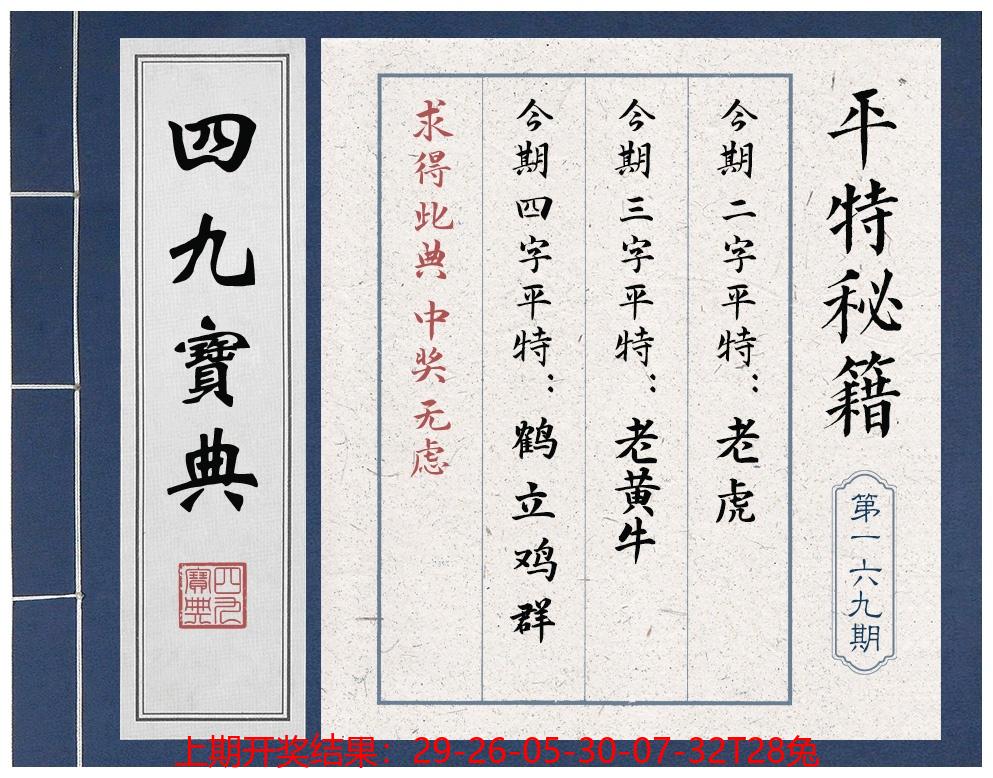 平特秘籍
第一六九期
今期二字平特：老虎
今期三字平特：老黄牛
今期四字平特：鹤立鸡群
求得此典 中奖无虑
四九寶典
四九寶典
上期开奖结果：29-26-05-30-07-32T28兔